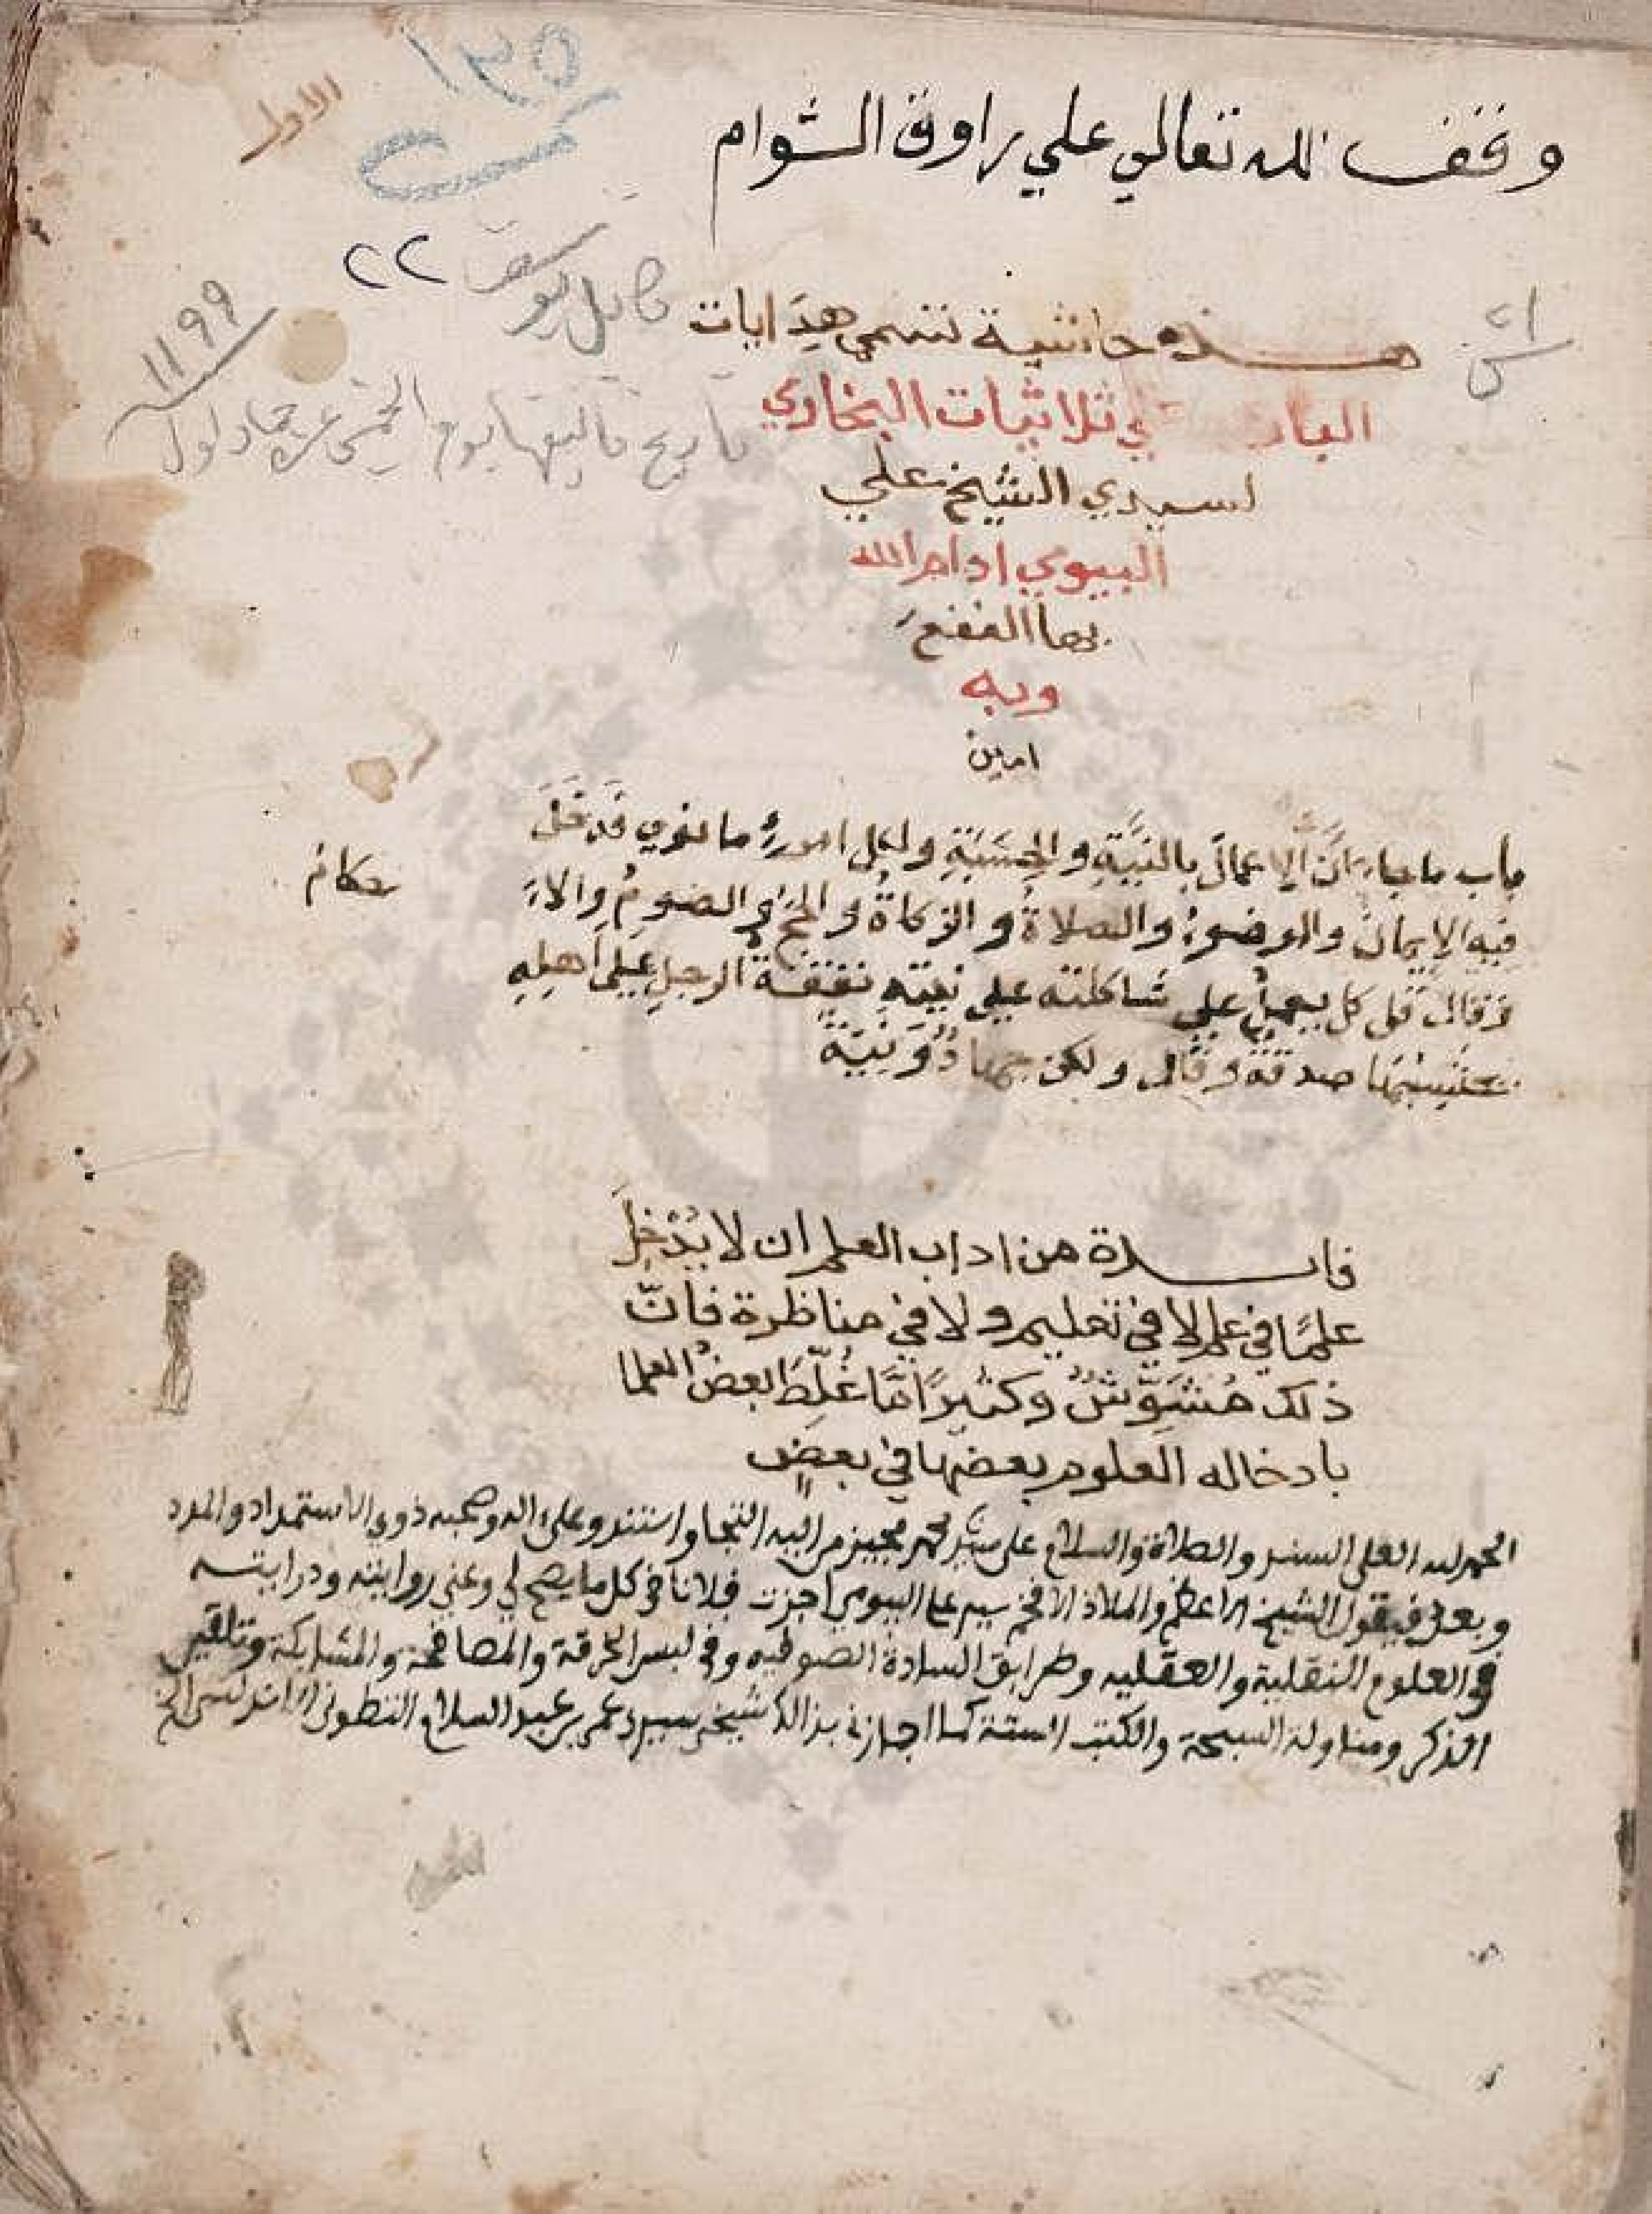 ١٣٥
الاول
وقف لله تعالي علي راوق الشوام
٢٢
١١٩٩
هذه حاشية تسمي هدايات
البار في ثلاثيات البخاري
لسيدي الشيخ علي
البيومي ادام الله
بها النفع
وبه
امين
تاريخ تاليفها يوم الخميس جماد اول
باب ما جاء ان الاعمال بالنية والحسبة ولكل امرء ما نوي فدخل
فيه الايمان والوضوء والصلاة والزكاة والحج والصوم والاحكام
وقال قل كل يعمل علي شاكلته علي نيته نفقة الرجل علي اهله
يحتسبها صدقة وقال ولكن جهاد ونية
فايدة من اداب العلم ان لا يُدْخِلَ
علمًا في علم لا في تعليم ولا في مناظرة فانّ
ذلك مُشَوِّشٌ وكثيرًا مّا غُلِّطَ بعضُ العلما
بادخاله العلوم بعضها في بعضٍ
الحمد لله العلي السند والصلاة والسلام على سيدنا محمد مجيز من اليه التجا واستند وعلى اله وصحبه ذوي الاستمداد والمدد
وبعد فيقول الشيخ الاعظم والملاذ الافخم سيدي علي البيومي اجزت فلانا في كل ما يصح لي وعني روايته ودرايته
في العلوم النقلية والعقليه وطرايق السادة الصوفيه وفي لبس الخرقة والمصافحة والمشابكة وتلقين
الذكر ومناولة السبحة والكتب الستة كما اجازني بذالك شيخي سيدي عمر بن عبد السلام التطوني الخ